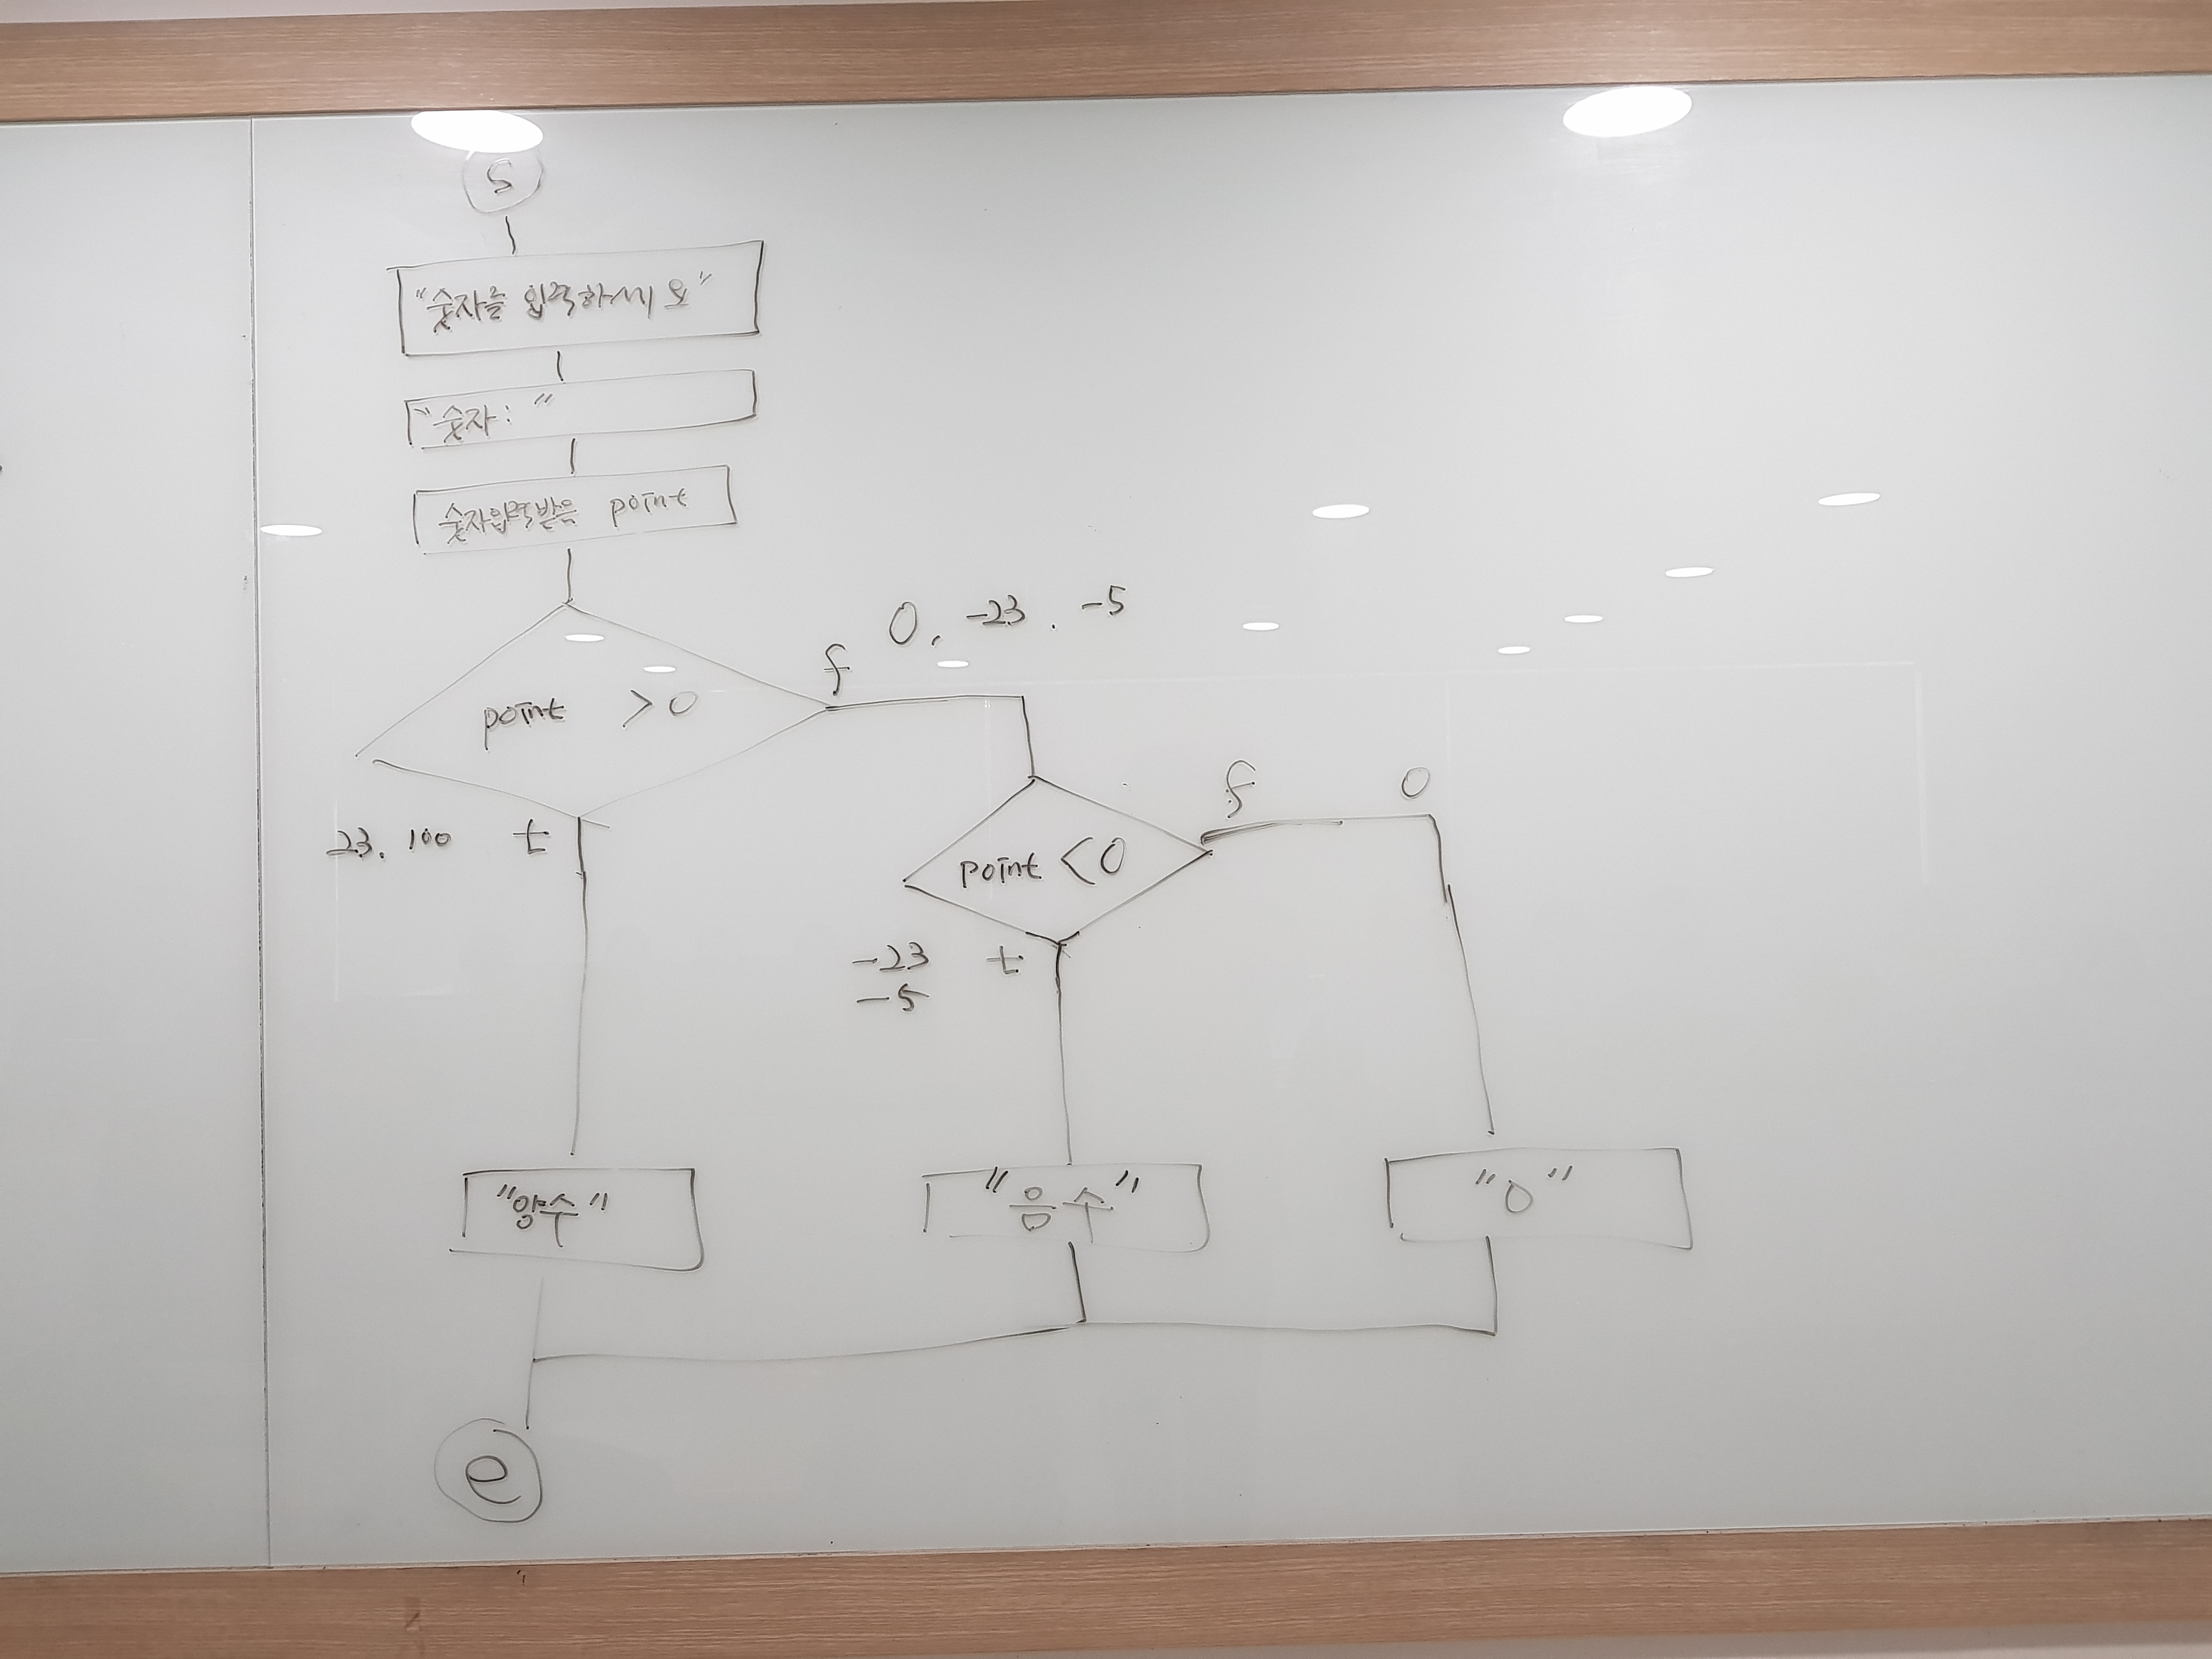 S
"숫자를 입력하세요"
"숫자: "
숫자입력받음 point
point >0
f
0, -23. -5
23. 100
t
point <0
f
0
-23
-5
t
"양수"
"음수"
"0"
e